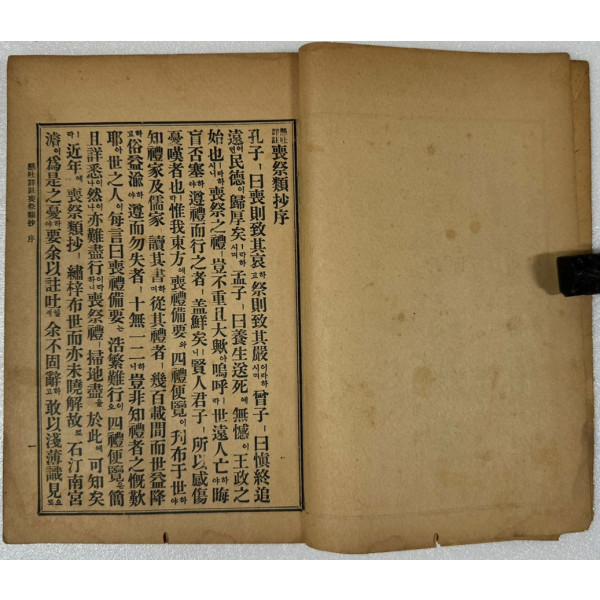 懸吐詳註 喪祭類抄序
孔子ㅣ曰喪則致其哀하고祭則致其嚴이라하시며曾子ㅣ曰愼終追
遠이면民德이歸厚矣ㅣ라하시며孟子ㅣ曰養生送死에無憾이王政之
始也ㅣ라하시니喪祭之禮ㅣ豈不重且大歟아嗚呼ㅣ라世遠人亡하야晦
盲否塞하야遵禮而行之者ㅣ盖鮮矣니賢人君子ㅣ所以感傷
憂嘆者也ㅣ라惟我東方에喪禮備要와四禮便覽이刋布于世하야
知禮家及儒家ㅣ讀其書하며從其禮者ㅣ幾百載間而世益降
하고俗益渝하야遵而勿失者ㅣ十無一二하니豈非知禮者之慨歎
耶아世之人이每言曰喪禮備要는浩繁難行이오四禮便覽은簡
且詳悉이나然이나亦難盡行이라하니喪祭禮ㅣ掃地盡을於此에可知矣
ㅣ라近年에喪祭類抄ㅣ繡梓布世而亦未曉解故로石汀南宮
濬이爲是之憂하야要余以註吐余不固辭하고敢以淺薄識見으로
懸吐詳註喪祭類抄 序 一